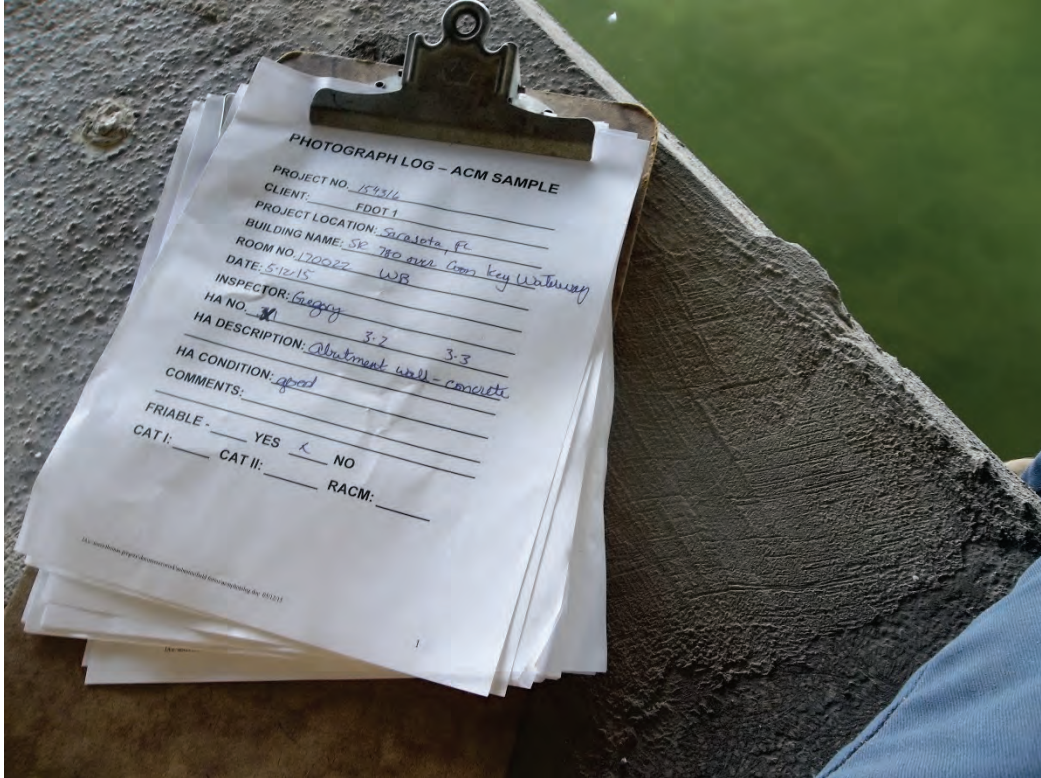 PHOTOGRAPH LOG – ACM SAMPLE
PROJECT NO. 154316
CLIENT: FDOT 1
PROJECT LOCATION: Sarasota, FL
BUILDING NAME: SR 780 over Coon Key Waterway
ROOM NO. 170022 WB
DATE: 5-12-15
INSPECTOR: Gregory
HA NO. 3.2 3.3
HA DESCRIPTION: Abutment wall - concrete
HA CONDITION: good
COMMENTS:
FRIABLE - ____ YES x NO
CAT I: ____ CAT II: ____ RACM: ____
1